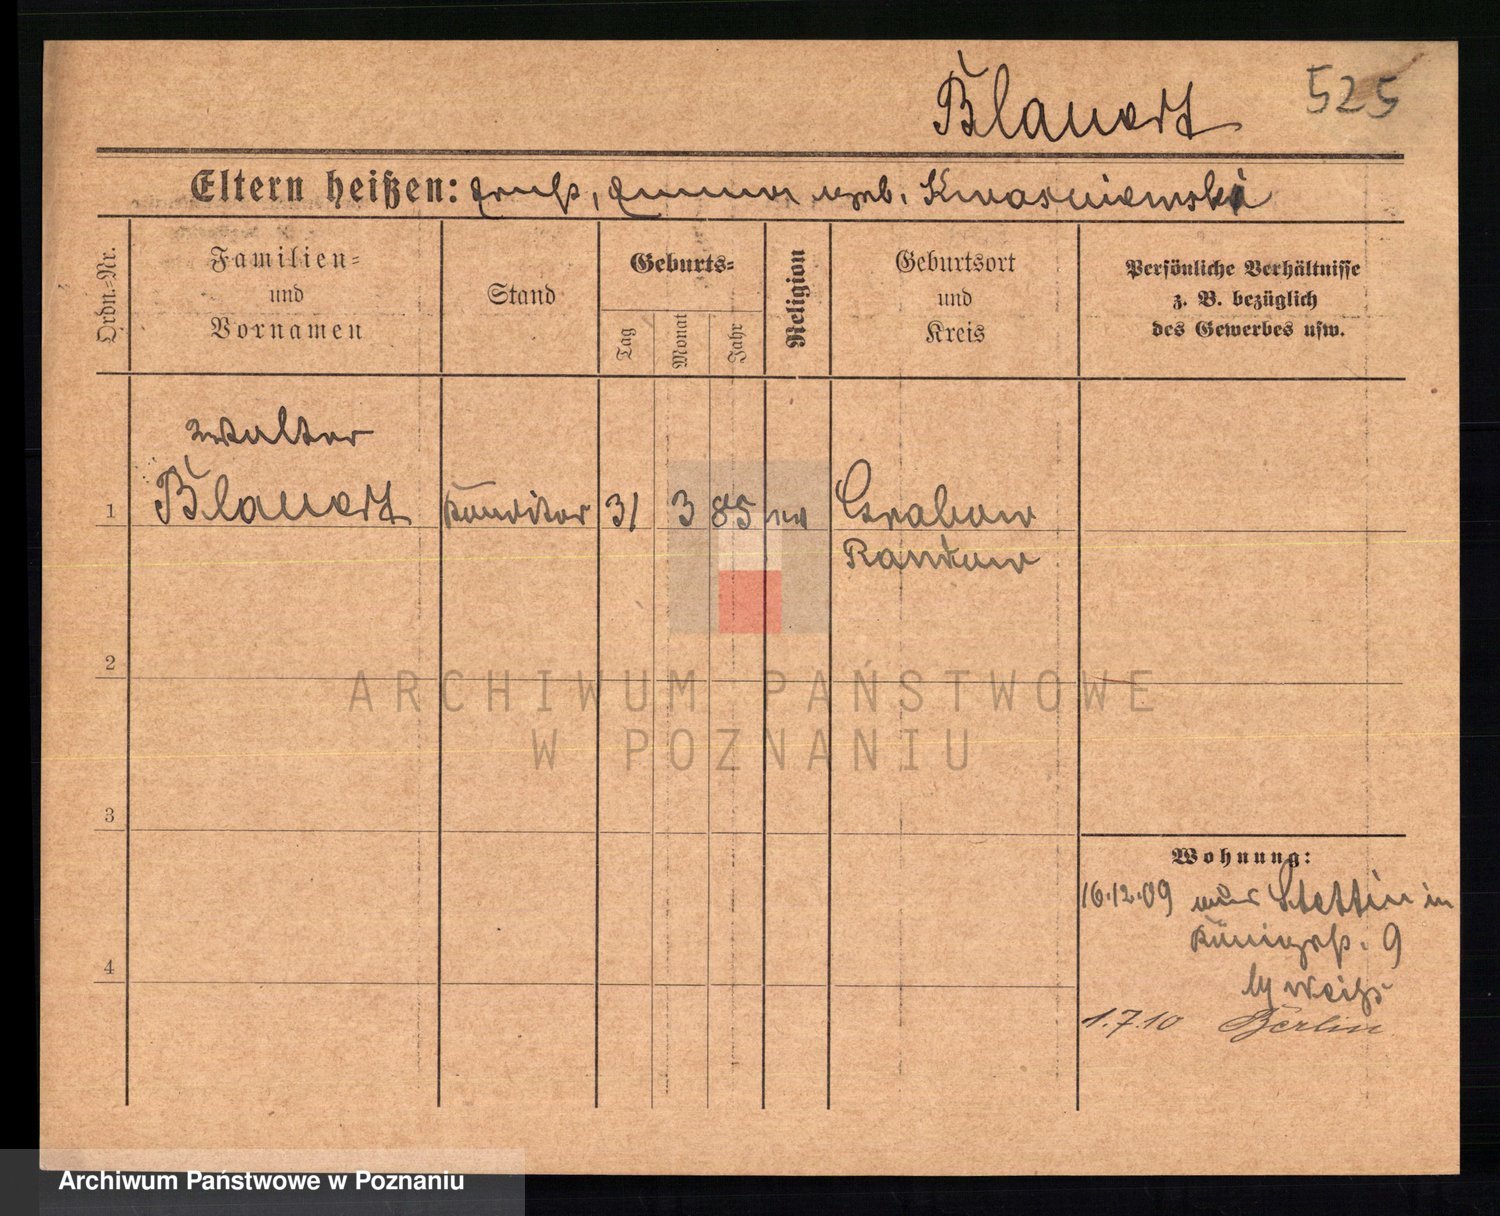 Blauert 525
Eltern heißen: Ernst, Emma geb. Kwasniewski
Ordn.-Nr.
Familien-
und
Vornamen
Stand
Geburts-
Tag
Monat
Jahr
Religion
Geburtsort
und
Kreis
Persönliche Verhältnisse
z. B. bezüglich
des Gewerbes usw.
Walter
1 Blauert Konditor 31 3 85 ev Grabow
Randow
2
ARCHIWUM PAŃSTWOWE
W POZNANIU
3
Wohnung:
16.12.09 aus Stettin in
Königsst. 9
by Weiß
4
1.7.10 Berlin
Archiwum Państwowe w Poznaniu